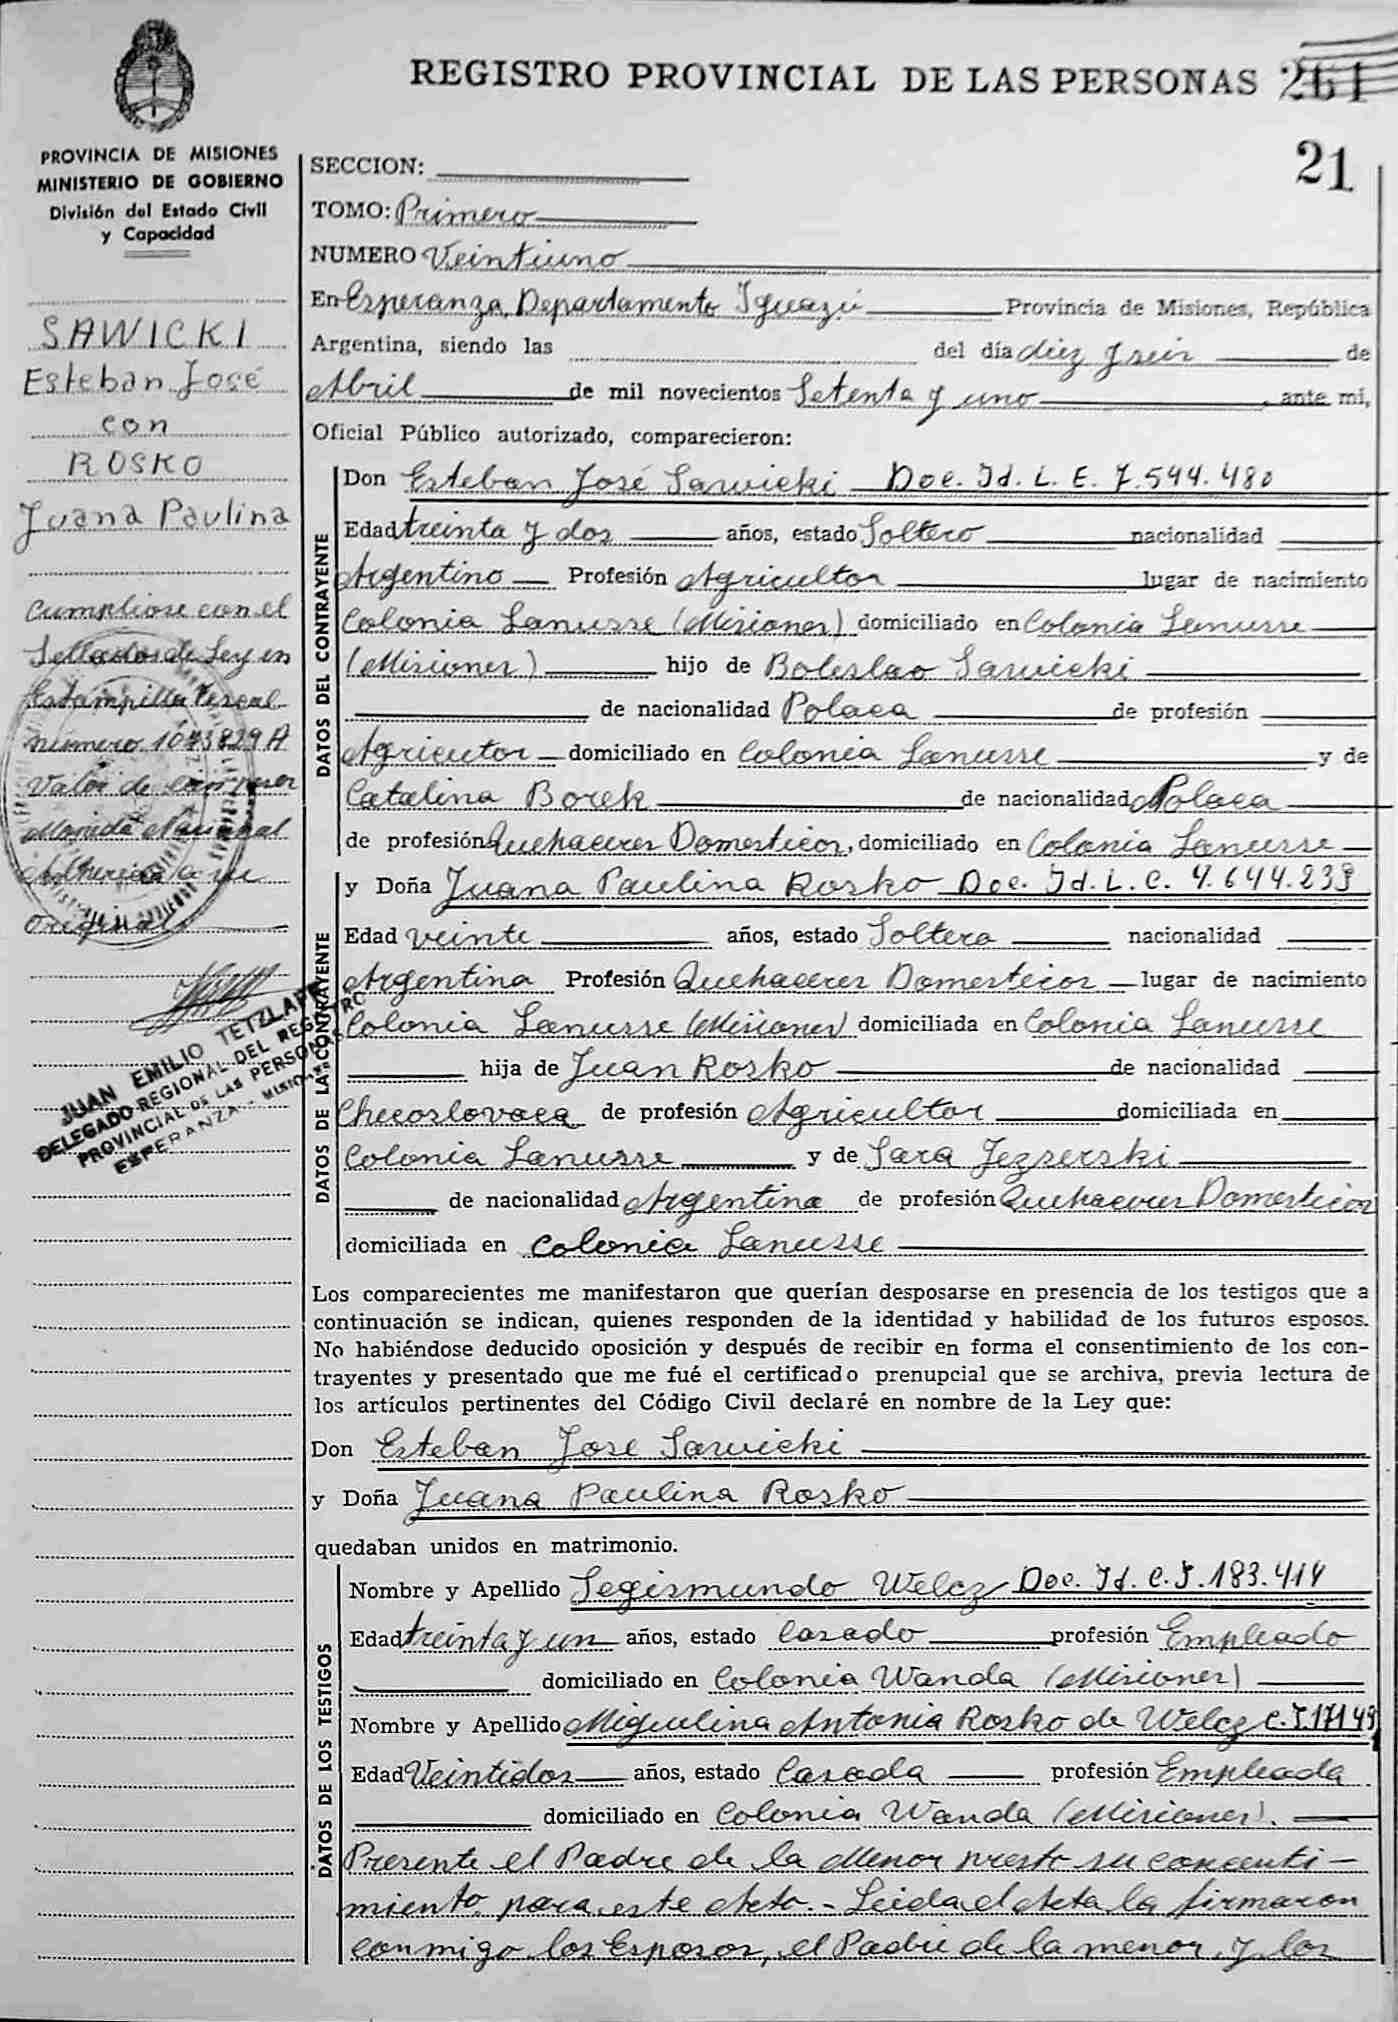 REGISTRO PROVINCIAL DE LAS PERSONAS 261
21
PROVINCIA DE MISIONES
MINISTERIO DE GOBIERNO
División del Estado Civil
y Capacidad
SAWICKI
Esteban José
con
ROSKO
Juana Paulina
Cumpliose con el
Sellados de Ley en
Estampilla Fiscal
número 1073829 A
Valor de cien pesos
Moneda Nacional
adherida a su
original
JUAN EMILIO TETZLAFF
DELEGADO REGIONAL DEL REGISTRO
PROVINCIAL DE LAS PERSONAS
ESPERANZA - MISIONES
SECCION:
TOMO: Primero
NUMERO Veintiuno
En Esperanza, Departamento Iguazú Provincia de Misiones, República
Argentina, siendo las del día diez y seis de
Abril de mil novecientos Setenta y uno, ante mí,
Oficial Público autorizado, comparecieron:
DATOS DEL CONTRAYENTE
Don Esteban José Sawicki Doc. Id. L. E. 7.544.480
Edad treinta y dos años, estado Soltero nacionalidad
Argentino Profesión Agricultor lugar de nacimiento
Colonia Lanusse (Misiones) domiciliado en Colonia Lanusse
(Misiones) hijo de Boleslao Sawicki
de nacionalidad Polaca de profesión
Agricutor domiciliado en Colonia Lanusse y de
Catalina Borek de nacionalidad Polaca
de profesión Quehaceres Domesticos, domiciliado en Colonia Lanusse
DATOS DE LA CONTRAYENTE
y Doña Juana Paulina Rosko Doc. Id. L. C. 4.644.239
Edad veinte años, estado Soltera nacionalidad
Argentina Profesión Quehaceres Domesticos lugar de nacimiento
Colonia Lanusse (Misiones) domiciliada en Colonia Lanusse
hija de Juan Rosko de nacionalidad
Checoslovaca de profesión Agricultor domiciliada en
Colonia Lanusse y de Sara Jezserski
de nacionalidad Argentina de profesión Quehaceres Domesticos
domiciliada en Colonia Lanusse
Los comparecientes me manifestaron que querían desposarse en presencia de los testigos que a
continuación se indican, quienes responden de la identidad y habilidad de los futuros esposos.
No habiéndose deducido oposición y después de recibir en forma el consentimiento de los con-
trayentes y presentado que me fué el certificado prenupcial que se archiva, previa lectura de
los artículos pertinentes del Código Civil declaré en nombre de la Ley que:
Don Esteban Jose Sawicki
y Doña Juana Paulina Rosko
quedaban unidos en matrimonio.
DATOS DE LOS TESTIGOS
Nombre y Apellido Segismundo Welcz Doc. Id. C.I. 183.414
Edad treinta y un años, estado Casado profesión Empleado
domiciliado en Colonia Wanda (Misiones)
Nombre y Apellido Miguelina Antonia Rosko de Welcz C.I. 17149
Edad Veintidos años, estado Casada profesión Empleada
domiciliado en Colonia Wanda (Misiones).
Presente el Padre de la Menor presto su consenti-
miento para este Acto. - Leida el Acta la firmaron
conmigo los Esposos, el Padre de la menor, y los